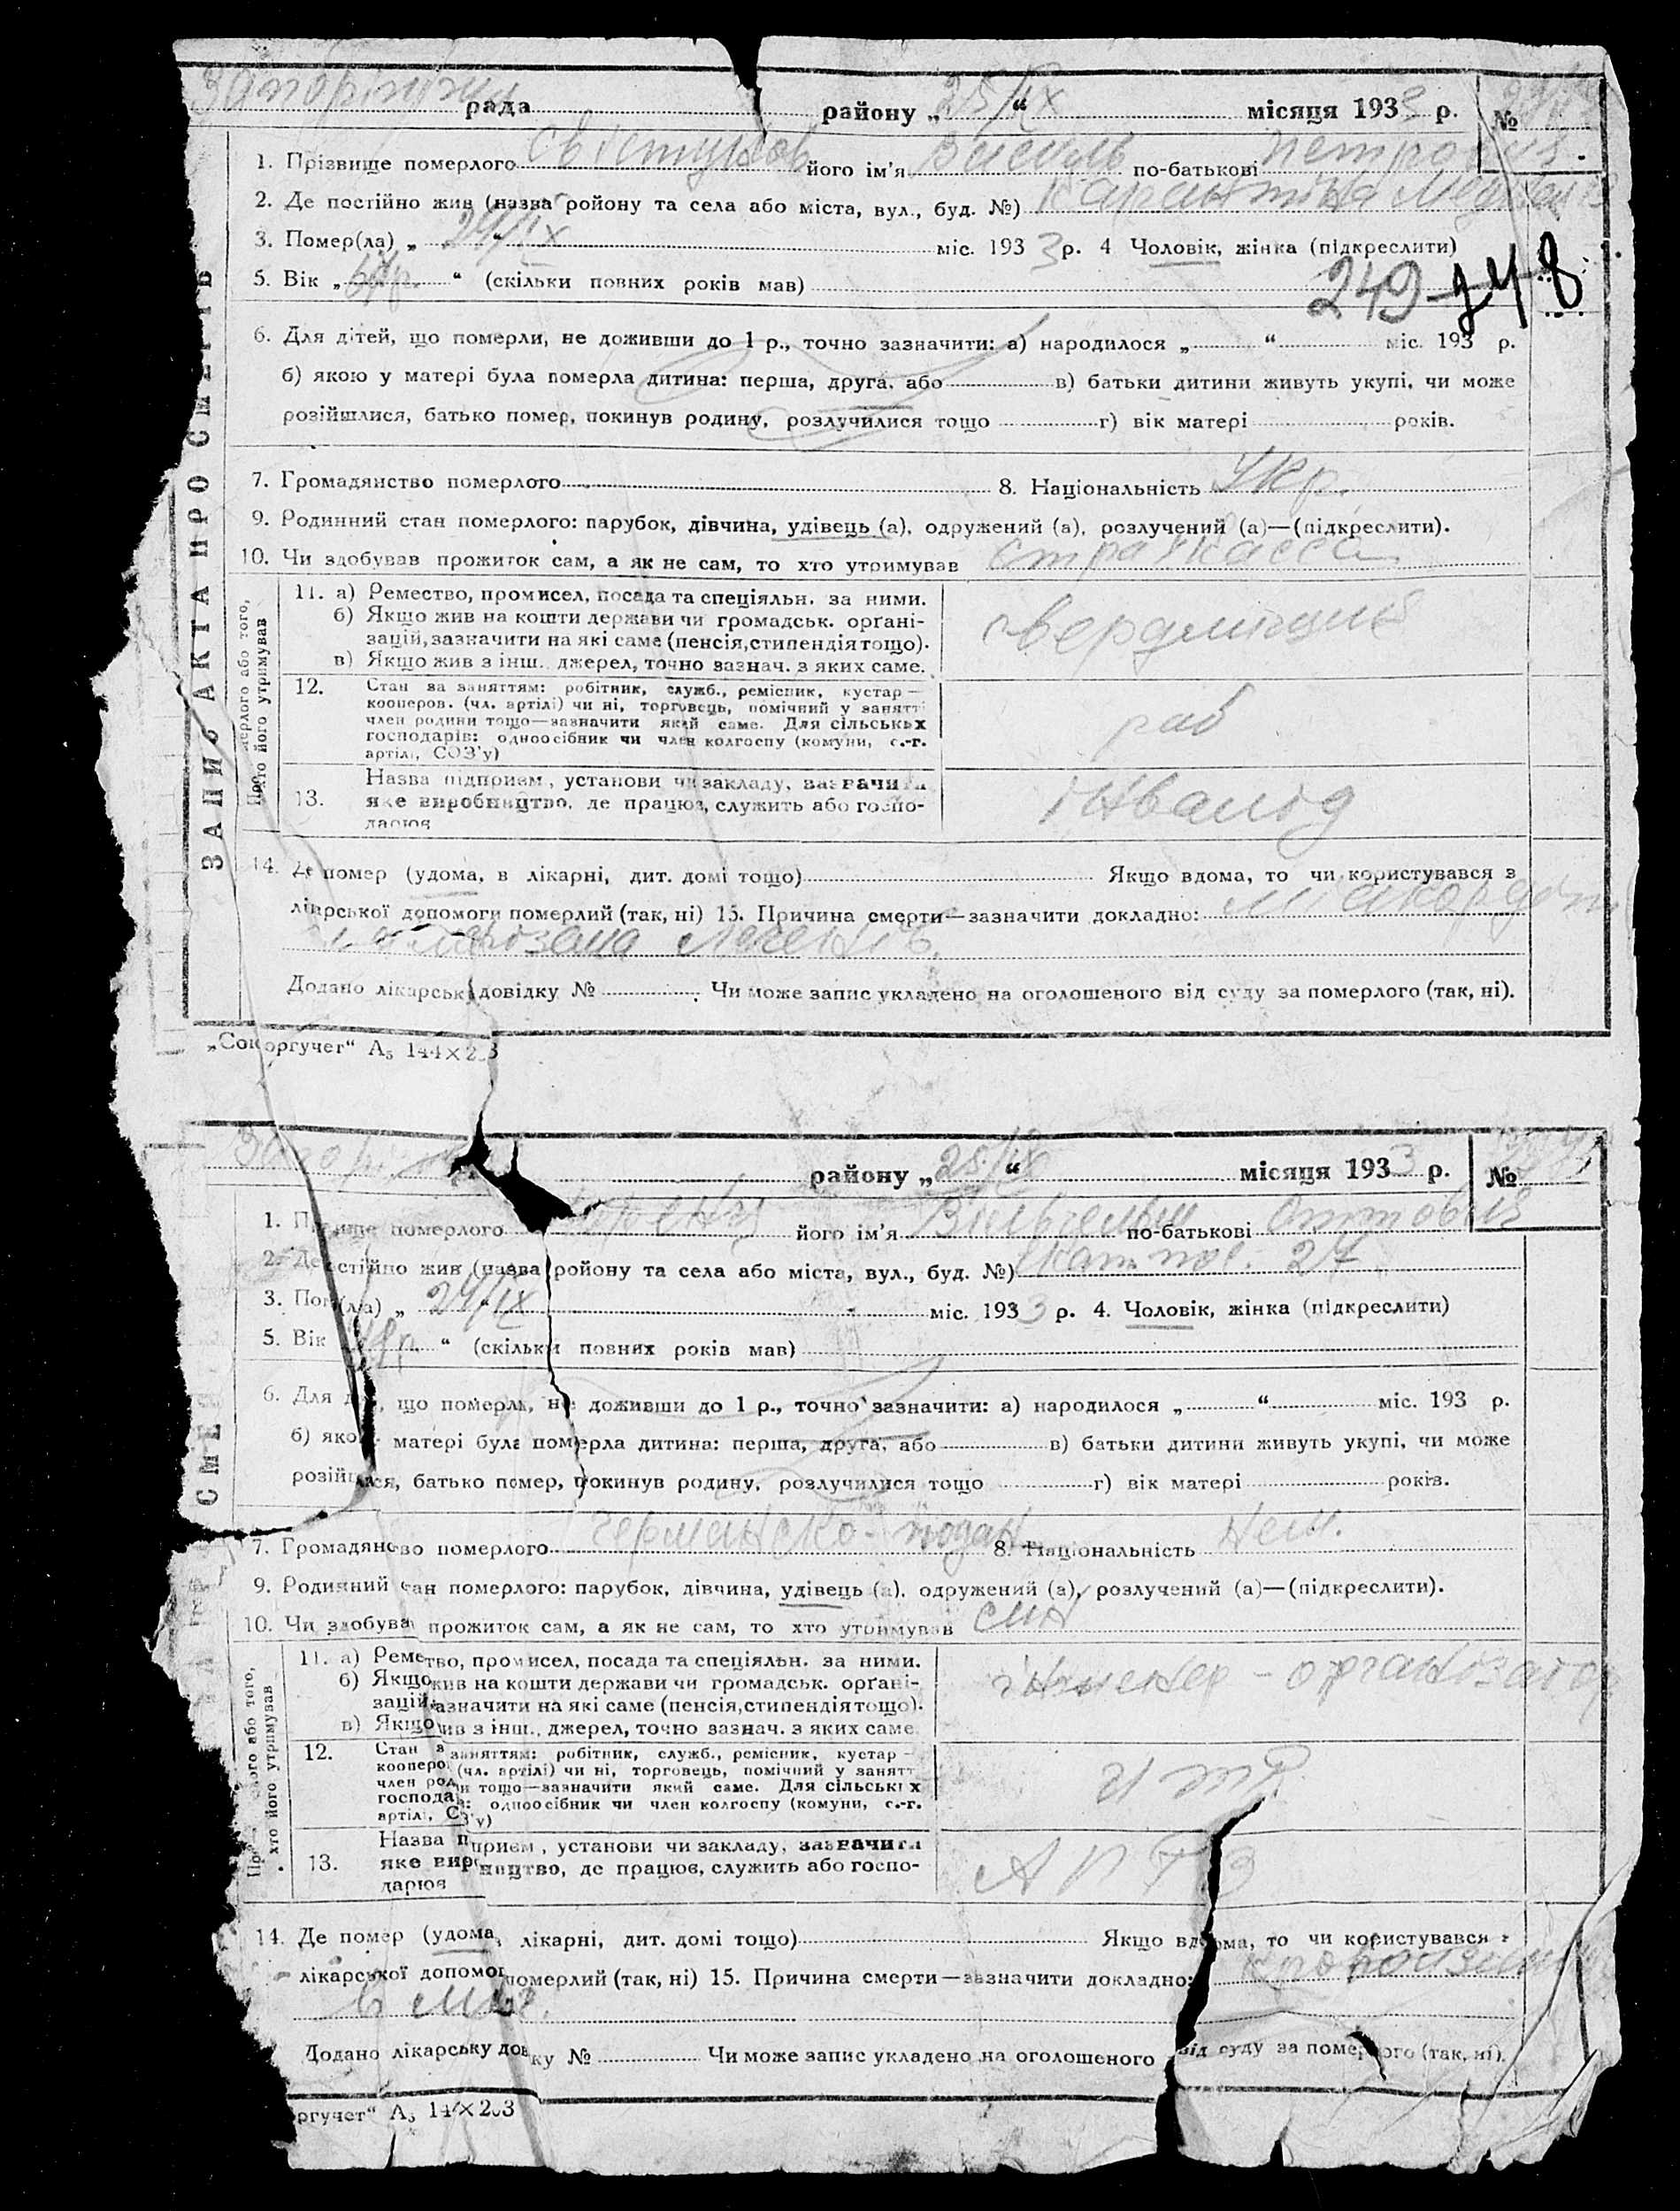 рада району „25/IX“ місяця 1933 р. №
1. Прізвище померлого його ім'я Василь по-батькові Петрович
2. Де постійно жив (назва району та села або міста, вул., буд. №) Карантина
3. Помер(ла) „24/IX міс. 1933 р. 4 Чоловік, жінка (підкреслити)
5. Вік „ “ (скільки повних років мав)
249 248
6. Для дітей, що померли, не доживши до 1 р., точно зазначити: а) народилося „ “ міс. 193 р.
б) якою у матері була померла дитина: перша, друга, або в) батьки дитини живуть укупі, чи може
розійшлися, батько помер, покинув родину, розлучилися тощо г) вік матері років.
7. Громадянство померлого 8. Національність Укр.
9. Родинний стан померлого: парубок, дівчина, удівець (а), одружений (а), розлучений (а)—(підкреслити).
10. Чи здобував прожиток сам, а як не сам, то хто утримував страхкасса
ЗАПИС АКТА ПРО СМЕРТЬ
мерлого або того,
хто його утримував
11. а) Ремество, промисел, посада та спеціяльн. за ними.
б) Якщо жив на кошти держави чи громадськ. орґані-
зацій, зазначити на які саме (пенсія, стипендія тощо).
в) Якщо жив з інш. джерел, точно зазнач. з яких саме.
12. Стан за заняттям: робітник, служб., ремісник, кустар—
кооперов. (чл. артілі) чи ні, торговець, помічний у занятті
член родини тощо—зазначити який саме. Для сільських
господарів: одноосібник чи член колгоспу (комуни, с.-г.
артілі, СОЗ'у)
раб
13. Назва підприєм., установи чи закладу, зазначити
яке виробництво, де працює, служить або госпо-
дарює
інвалід
14. Де помер (удома, в лікарні, дит. домі тощо) Якщо вдома, то чи користувався з
лікарської допомоги померлий (так, ні) 15. Причина смерти—зазначити докладно: міокардит
легенів.
Додано лікарську довідку № Чи може запис укладено на оголошеного від суду за померлого (так, ні).
„Союзоргучет“ А₅ 144×203
району „25/IX“ місяця 1933 р. №
1. Прізвище померлого його ім'я Вильгельм по-батькові Оттович
2. Де постійно жив (назва району та села або міста, вул., буд. №) 27
3. Пом(ла) „24/IX міс. 1933 р. 4. Чоловік, жінка (підкреслити)
5. Вік “ (скільки повних років мав)
6. Для дітей, що померли, не доживши до 1 р., точно зазначити: а) народилося „ “ міс. 193 р.
б) якою у матері була померла дитина: перша, друга, або в) батьки дитини живуть укупі, чи може
розійшлися, батько помер, покинув родину, розлучилися тощо г) вік матері років.
7. Громадянство померлого германско-подан 8. Національність нем.
9. Родинний стан померлого: парубок, дівчина, удівець (а), одружений (а), розлучений (а)—(підкреслити).
10. Чи здобував прожиток сам, а як не сам, то хто утримував син
11. а) Ремество, промисел, посада та спеціяльн. за ними.
б) Якщо жив на кошти держави чи громадськ. орґані-
зацій, зазначити на які саме (пенсія, стипендія тощо).
в) Якщо жив з інш., джерел, точно зазнач. з яких саме.
інженер - организатор
12. Стан за заняттям: робітник, служб., ремісник, кустар—
кооперов. (чл. артілі) чи ні, торговець, помічний у занятті
член родини тощо—зазначити який саме. Для сільських
господарів: одноосібник чи член колгоспу (комуни, с.-г.
артілі, СОЗ'у)
итр
13. Назва підприєм., установи чи закладу, зазначити
яке виробництво, де працює, служить або госпо-
дарює
14. Де помер (удома, лікарні, дит. домі тощо) Якщо вдома, то чи користувався з
лікарської допомоги померлий (так, ні) 15. Причина смерти—зазначити докладно:
Додано лікарську довідку № Чи може запис укладено на оголошеного від суду за померлого (так, ні).
оргучет“ А₅ 144×203